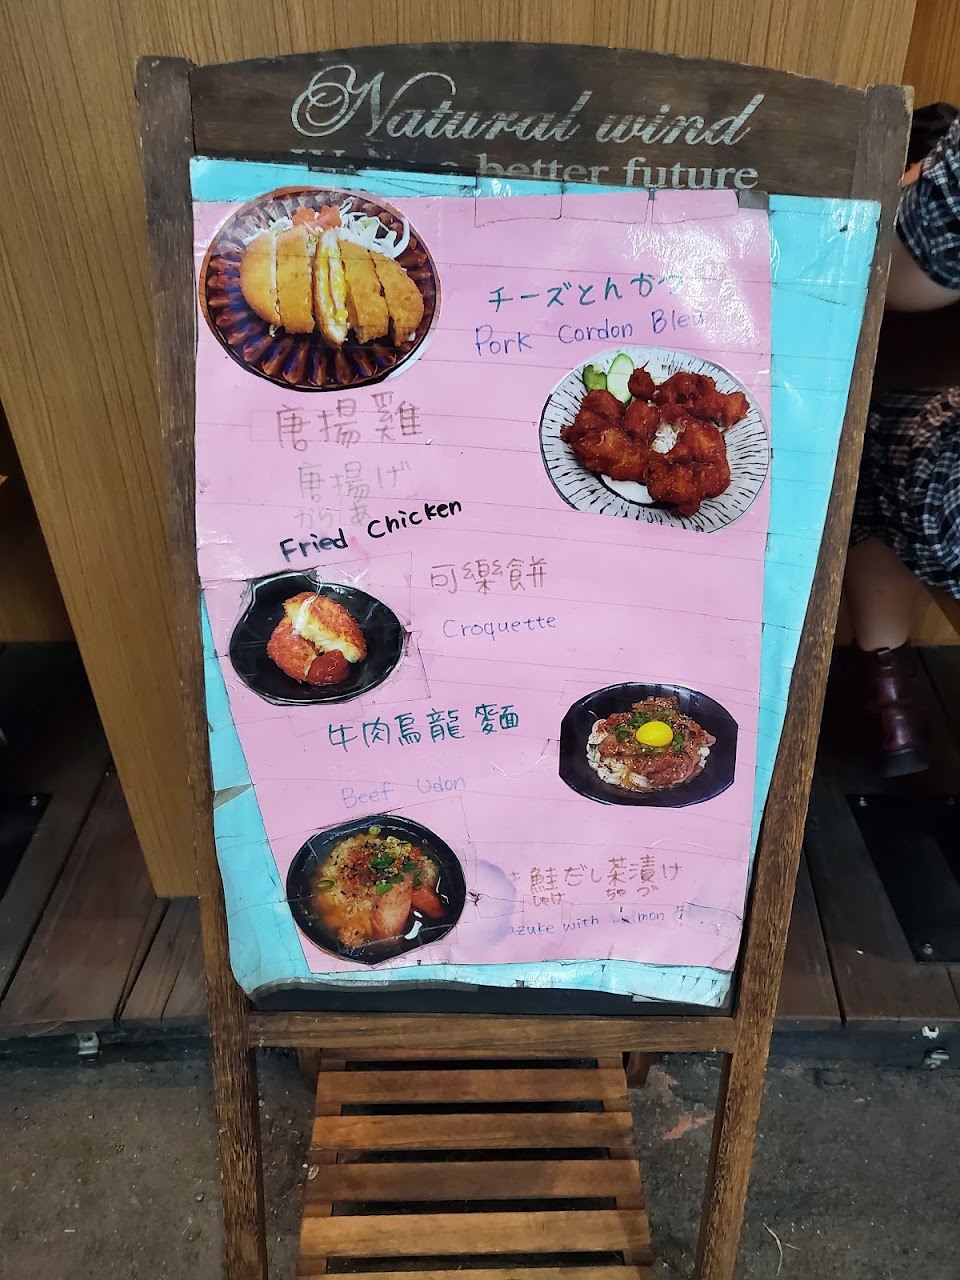 Natural wind
better future
チーズとんかつ
Pork Cordon Bleu
唐揚雞
唐揚げ
からあ
Fried Chicken
可樂餅
Croquette
牛肉烏龍麵
Beef Udon
鮭だし茶漬け
しゃけ ちゃづ
with Salmon